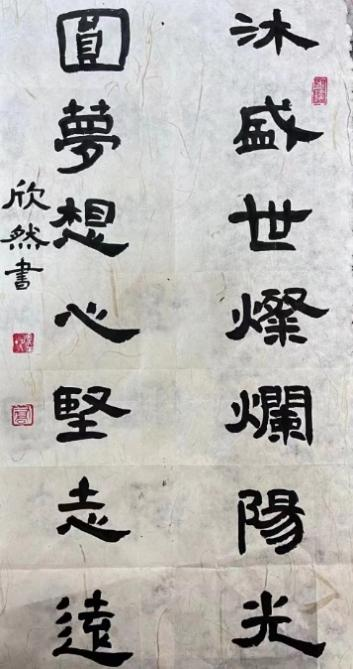 沐盛世燦爛陽光
圓夢想心堅志遠
欣然書